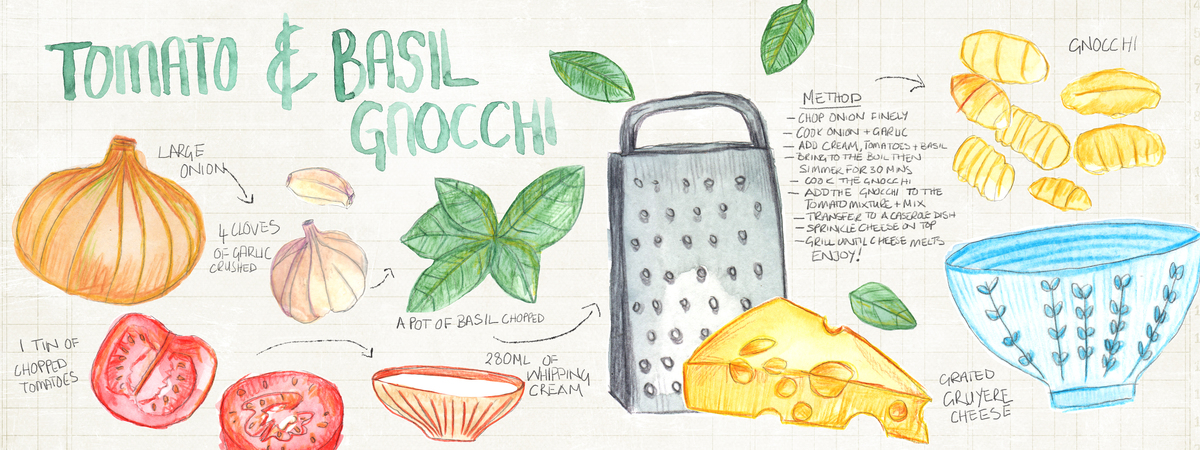 TOMATO & BASIL
GNOCCHI
LARGE
ONION
4 CLOVES
OF GARLIC
CRUSHED
A POT OF BASIL CHOPPED
1 TIN OF
CHOPPED
TOMATOES
280ML OF
WHIPPING
CREAM
METHOD
– CHOP ONION FINELY
– COOK ONION + GARLIC
– ADD CREAM, TOMATOES + BASIL
BRING TO THE BOIL THEN
SIMMER FOR 30 MINS
– COOK THE GNOCCHI
– ADD THE GNOCCHI TO THE
TOMATO MIXTURE + MIX
– TRANSFER TO A CASEROLE DISH
– SPRINKLE CHEESE ON TOP
– GRILL UNTIL CHEESE MELTS
ENJOY!
GNOCCHI
GRATED
GRUYERE
CHEESE